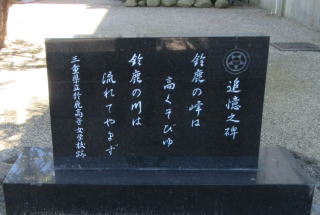 追憶之碑
鈴鹿の峰は
高くそびゆ
鈴鹿の川は
流れてやまず
三重県立鈴鹿高等女学校跡